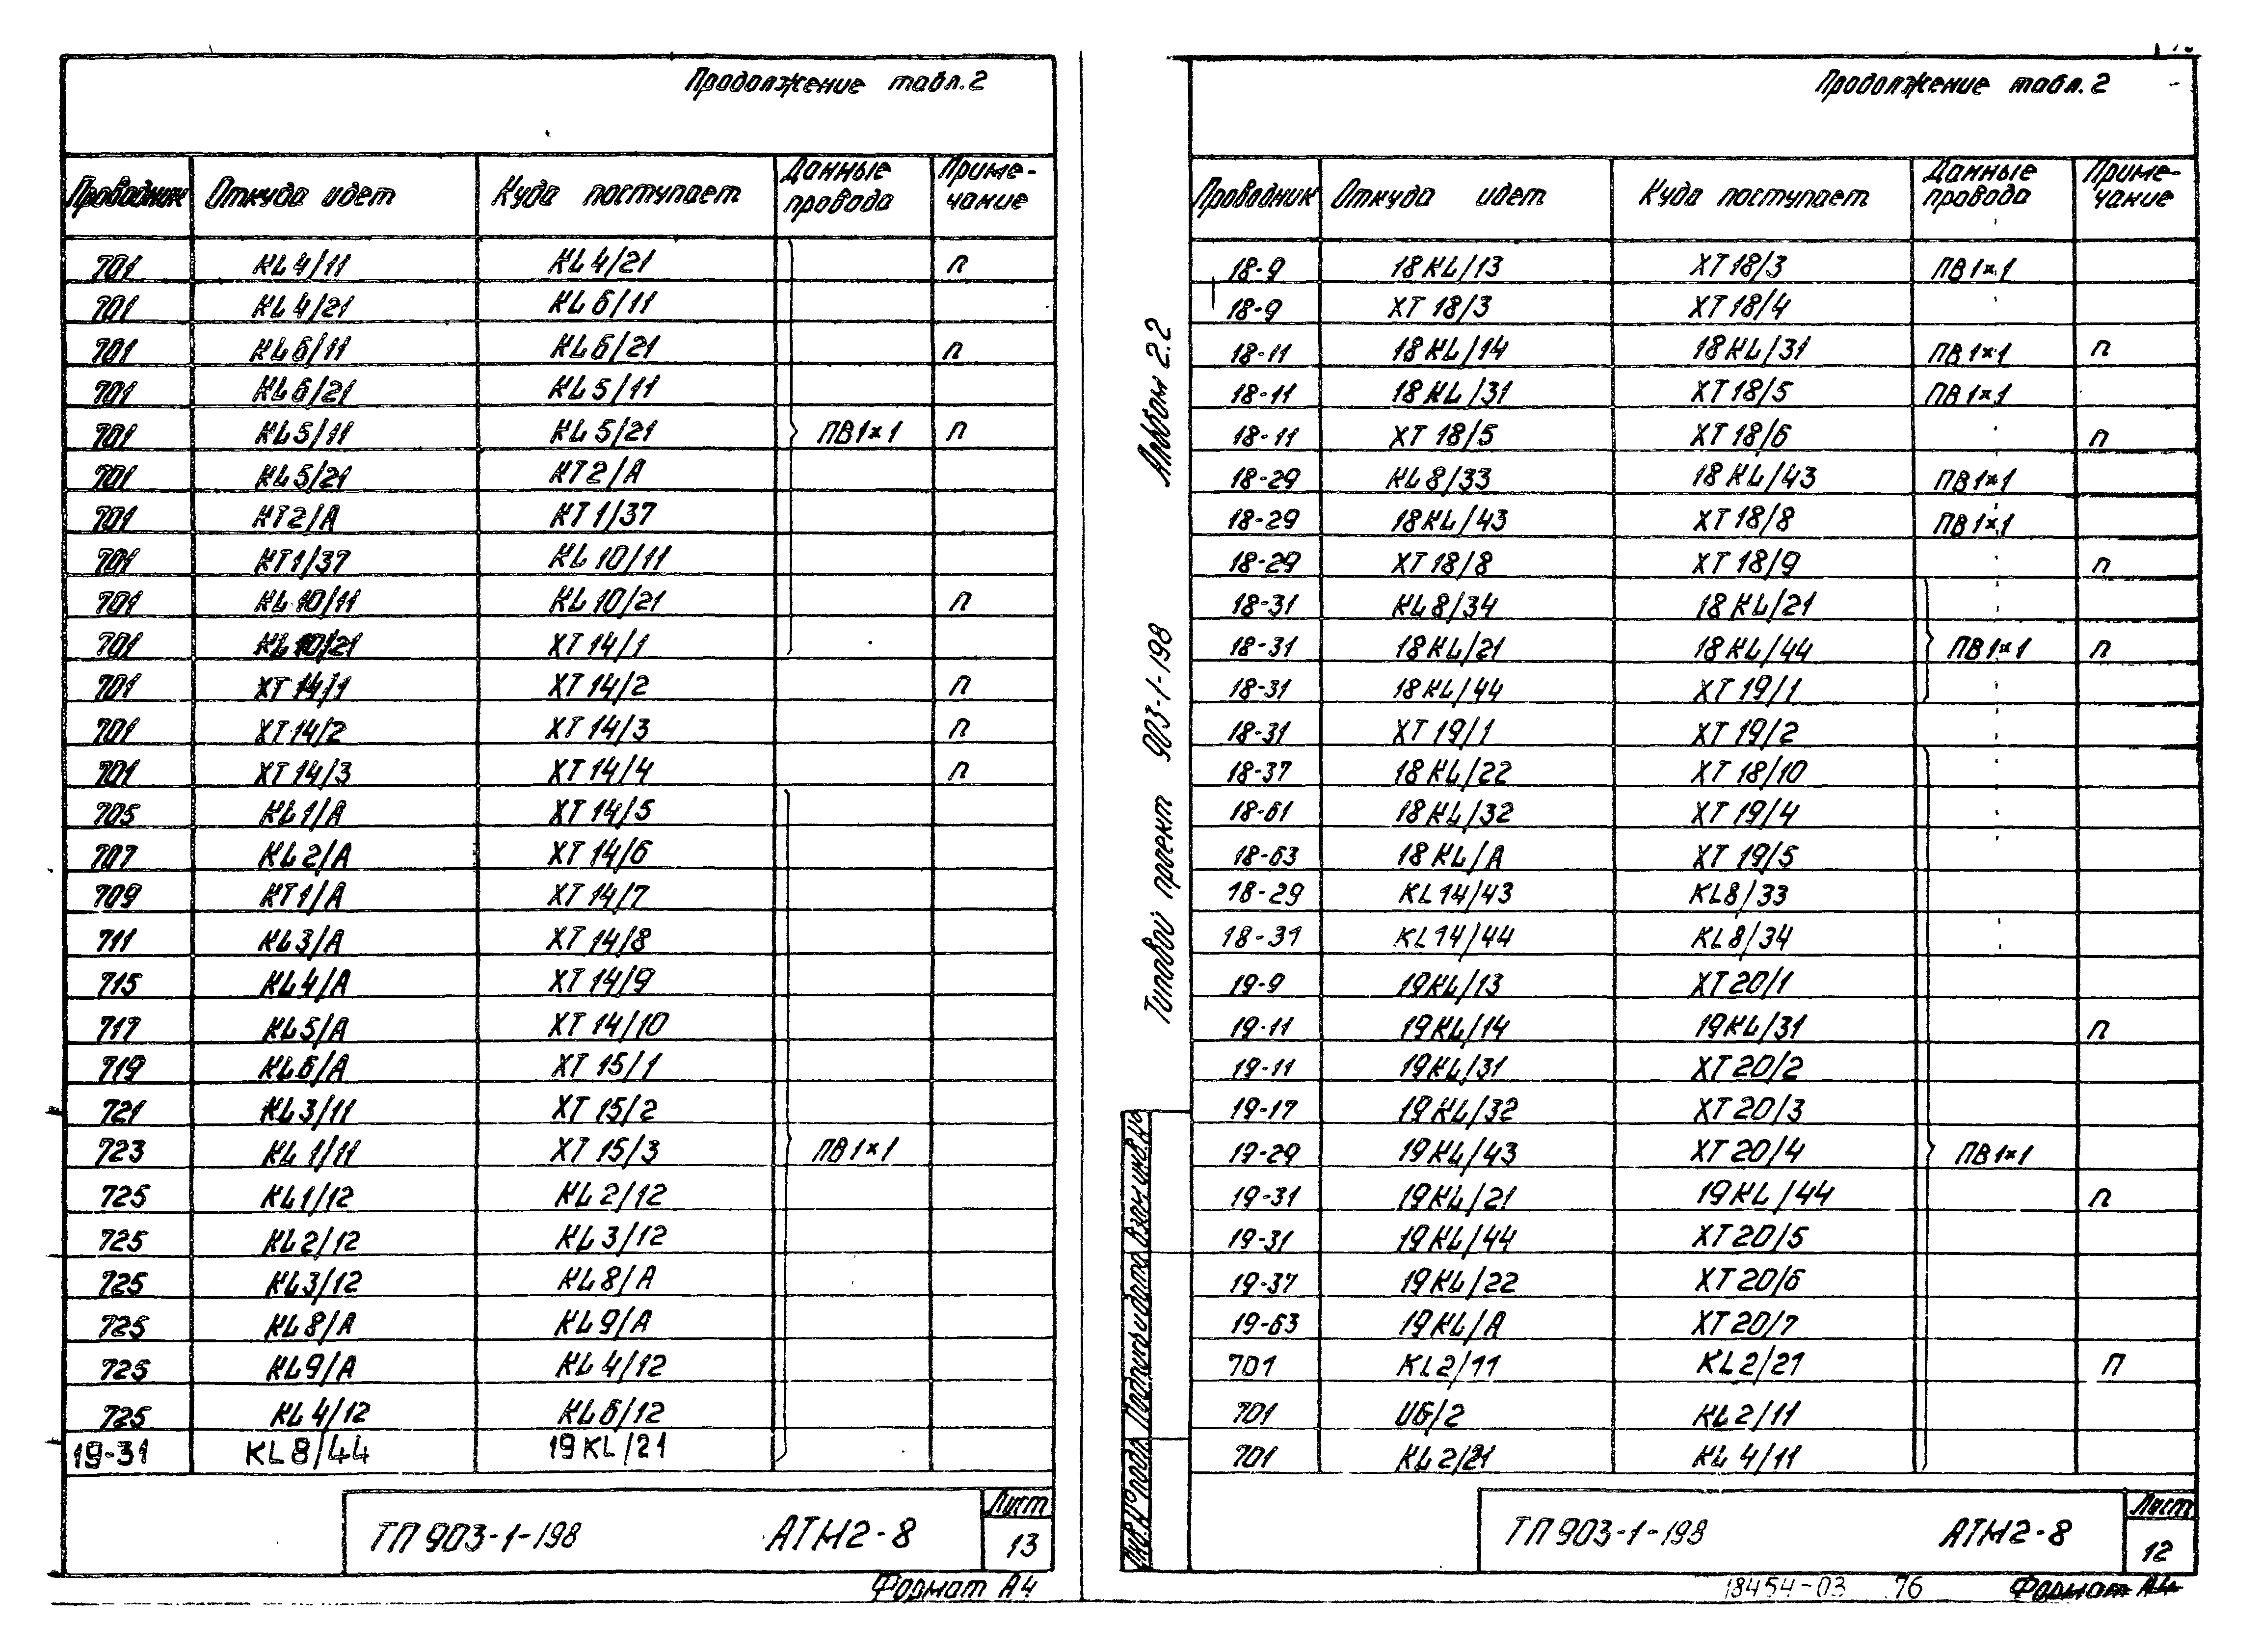 Продолжение табл.2
Проводник Откуда идет Куда поступает Данные провода Приме-чание
701 KL4/11 KL4/21 П
701 KL4/21 KL6/11
701 KL6/11 KL6/21 П
701 KL6/21 KL5/11
701 KL5/11 KL5/21 ПВ1×1 П
701 KL5/21 KT2/A
701 KT2/A KT1/37
701 KT1/37 KL10/11
701 KL10/11 KL10/21 П
701 KL10/21 XT14/1
701 XT14/1 XT14/2 П
701 XT14/2 XT14/3 П
701 XT14/3 XT14/4 П
705 KL1/A XT14/5
707 KL2/A XT14/6
709 KT1/A XT14/7
711 KL3/A XT14/8
715 KL4/A XT14/9
717 KL5/A XT14/10
719 KL6/A XT15/1
721 KL3/11 XT15/2
723 KL1/11 XT15/3 ПВ1×1
725 KL1/12 KL2/12
725 KL2/12 KL3/12
725 KL3/12 KL8/A
725 KL8/A KL9/A
725 KL9/A KL4/12
725 KL4/12 KL6/12
19-31 KL8/44 19KL/21
ТП903-1-198 АТМ2-8 Лист 13
Формат А4
Продолжение табл.2
Проводник Откуда идет Куда поступает Данные провода Приме-чание
18-9 18KL/13 XT18/3 ПВ1×1
18-9 XT18/3 XT18/4
18-11 18KL/14 18KL/31 ПВ1×1 П
18-11 18KL/31 XT18/5 ПВ1×1
18-11 XT18/5 XT18/6 П
18-29 KL8/33 18KL/43 ПВ1×1
18-29 18KL/43 XT18/8 ПВ1×1
18-29 XT18/8 XT18/9 П
18-31 KL8/34 18KL/21
18-31 18KL/21 18KL/44 ПВ1×1 П
18-31 18KL/44 XT19/1
18-31 XT19/1 XT19/2
18-37 18KL/22 XT18/10
18-61 18KL/32 XT19/4
18-63 18KL/A XT19/5
18-29 KL14/43 KL8/33
18-31 KL14/44 KL8/34
19-9 19KL/13 XT20/1
19-11 19KL/14 19KL/31 П
19-11 19KL/31 XT20/2
19-17 19KL/32 XT20/3
19-29 19KL/43 XT20/4 ПВ1×1
19-31 19KL/21 19KL/44 П
19-31 19KL/44 XT20/5
19-37 19KL/22 XT20/6
19-63 19KL/A XT20/7
701 KL2/11 KL2/21 П
701 U6/2 KL2/11
701 KL2/21 KL4/11
ТП903-1-198 АТМ2-8 Лист 12
18454-03 76 Формат А4
Типовой проект 903-1-198 Альбом 2.2
Инв.№подл. Подпись и дата Взам.инв.№